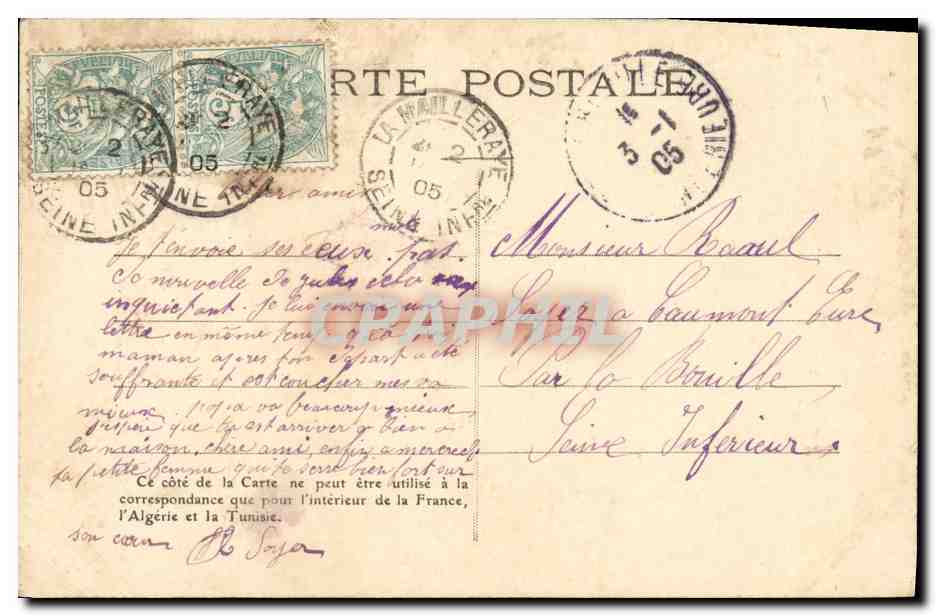 CARTE POSTALE
LA MAILLERAYE
2
05
SEINE INFRE
LA MAILLERAYE
2
05
SEINE INFRE
2
05
SEINE INF
POSTES
5
5
3 -1
05
CPAPHIL
cher ami
Je t'envoie ses ceux pas
de nouvelle de jules cela
inquietant. je lui envoie une
lettre en même temp
maman apres ton depart a été
souffrante et est coucher mes va
mieux. papa va beaucoup mieux
j'espère que tu est arriver bien a
la maison, chere ami enfin a mercredi
ta petite femme qui te serre bien fort sur
Ce côté de la Carte ne peut être utilisé à la
correspondance que pour l'intérieur de la France,
l'Algérie et la Tunisie.
son cœur
Monsieur Raoul
à Caumont Eure
Par la Bouille
Seine Inferieur